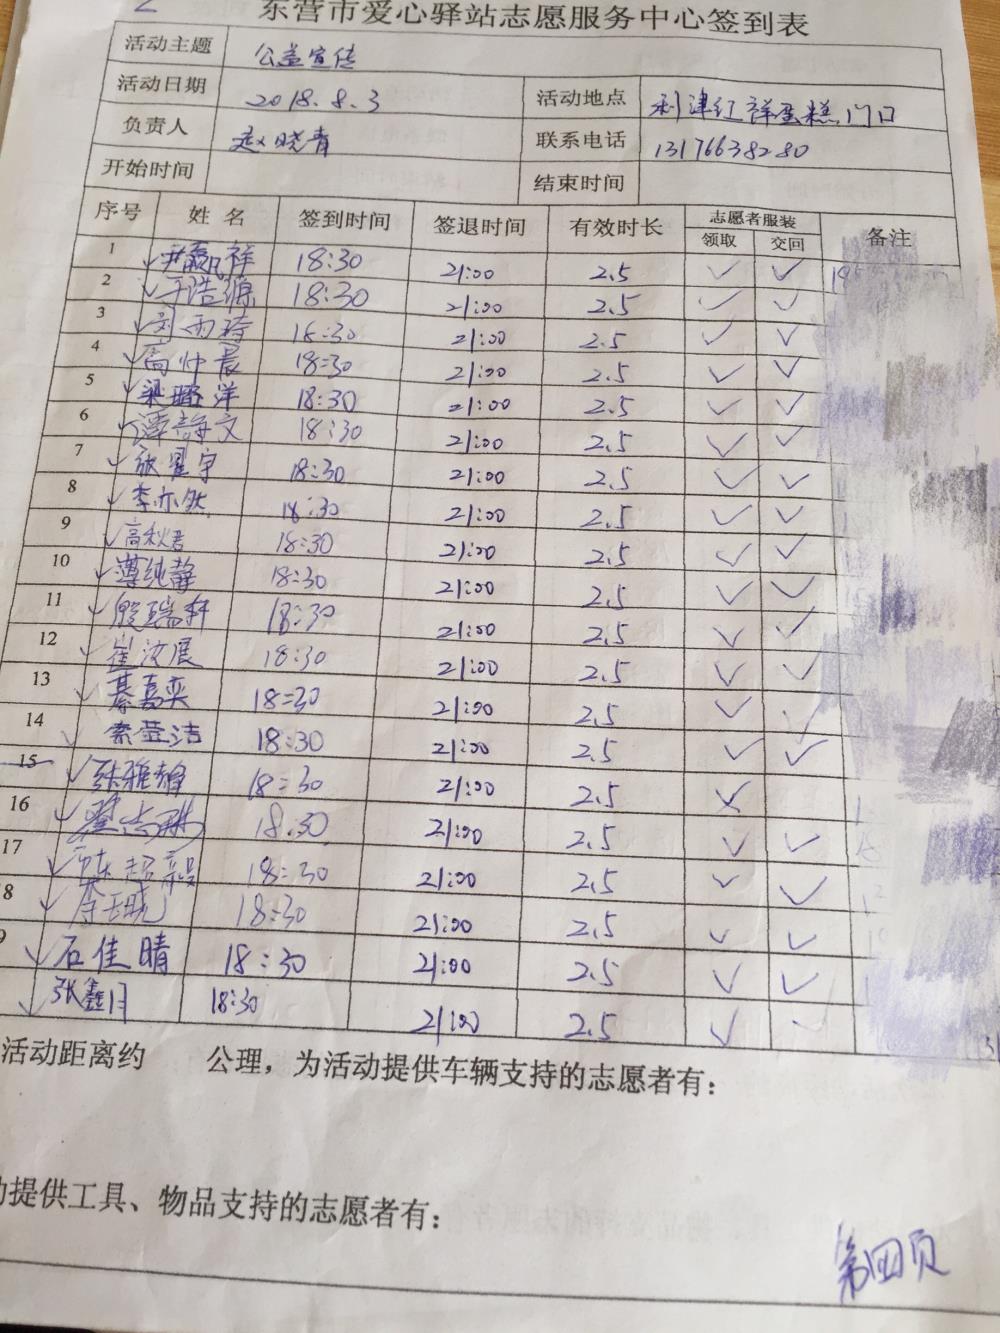 东营市爱心驿站志愿服务中心签到表
活动主题 公益宣传
活动日期 2018.8.3 活动地点 利津红祥蛋糕门口
负责人 赵晓青 联系电话 13176638280
开始时间 结束时间
序号 姓名 签到时间 签退时间 有效时长 志愿者服装 备注
领取 交回
1 祥 18:30 21:00 2.5 ✓ ✓
2 于浩源 18:30 21:00 2.5 ✓ ✓
3 刘雨琦 18:30 21:00 2.5 ✓ ✓
4 高帅晨 18:30 21:00 2.5 ✓ ✓
5 梁璐洋 18:30 21:00 2.5 ✓ ✓
6 谭静文 18:30 21:00 2.5 ✓ ✓
7 张星宇 18:30 21:00 2.5 ✓ ✓
8 李亦然 18:30 21:00 2.5 ✓ ✓
9 高秋君 18:30 21:00 2.5 ✓ ✓
10 薄纯静 18:30 21:00 2.5 ✓ ✓
11 殷瑞轩 18:30 21:00 2.5 ✓ ✓
12 崔汝展 18:30 21:00 2.5 ✓ ✓
13 綦嘉奕 18:30 21:00 2.5 ✓ ✓
14 綦莹洁 18:30 21:00 2.5 ✓ ✓
15 雅静 18:30 21:00 2.5
16 18:30 21:00 2.5 ✓ ✓
17 18:30 21:00 2.5 ✓ ✓
8 18:30 21:00 2.5 ✓ ✓
9 石佳晴 18:30 21:00 2.5 ✓ ✓
张鑫月 18:30 21:00 2.5 ✓
活动距离约 公理，为活动提供车辆支持的志愿者有：
提供工具、物品支持的志愿者有：
第四页